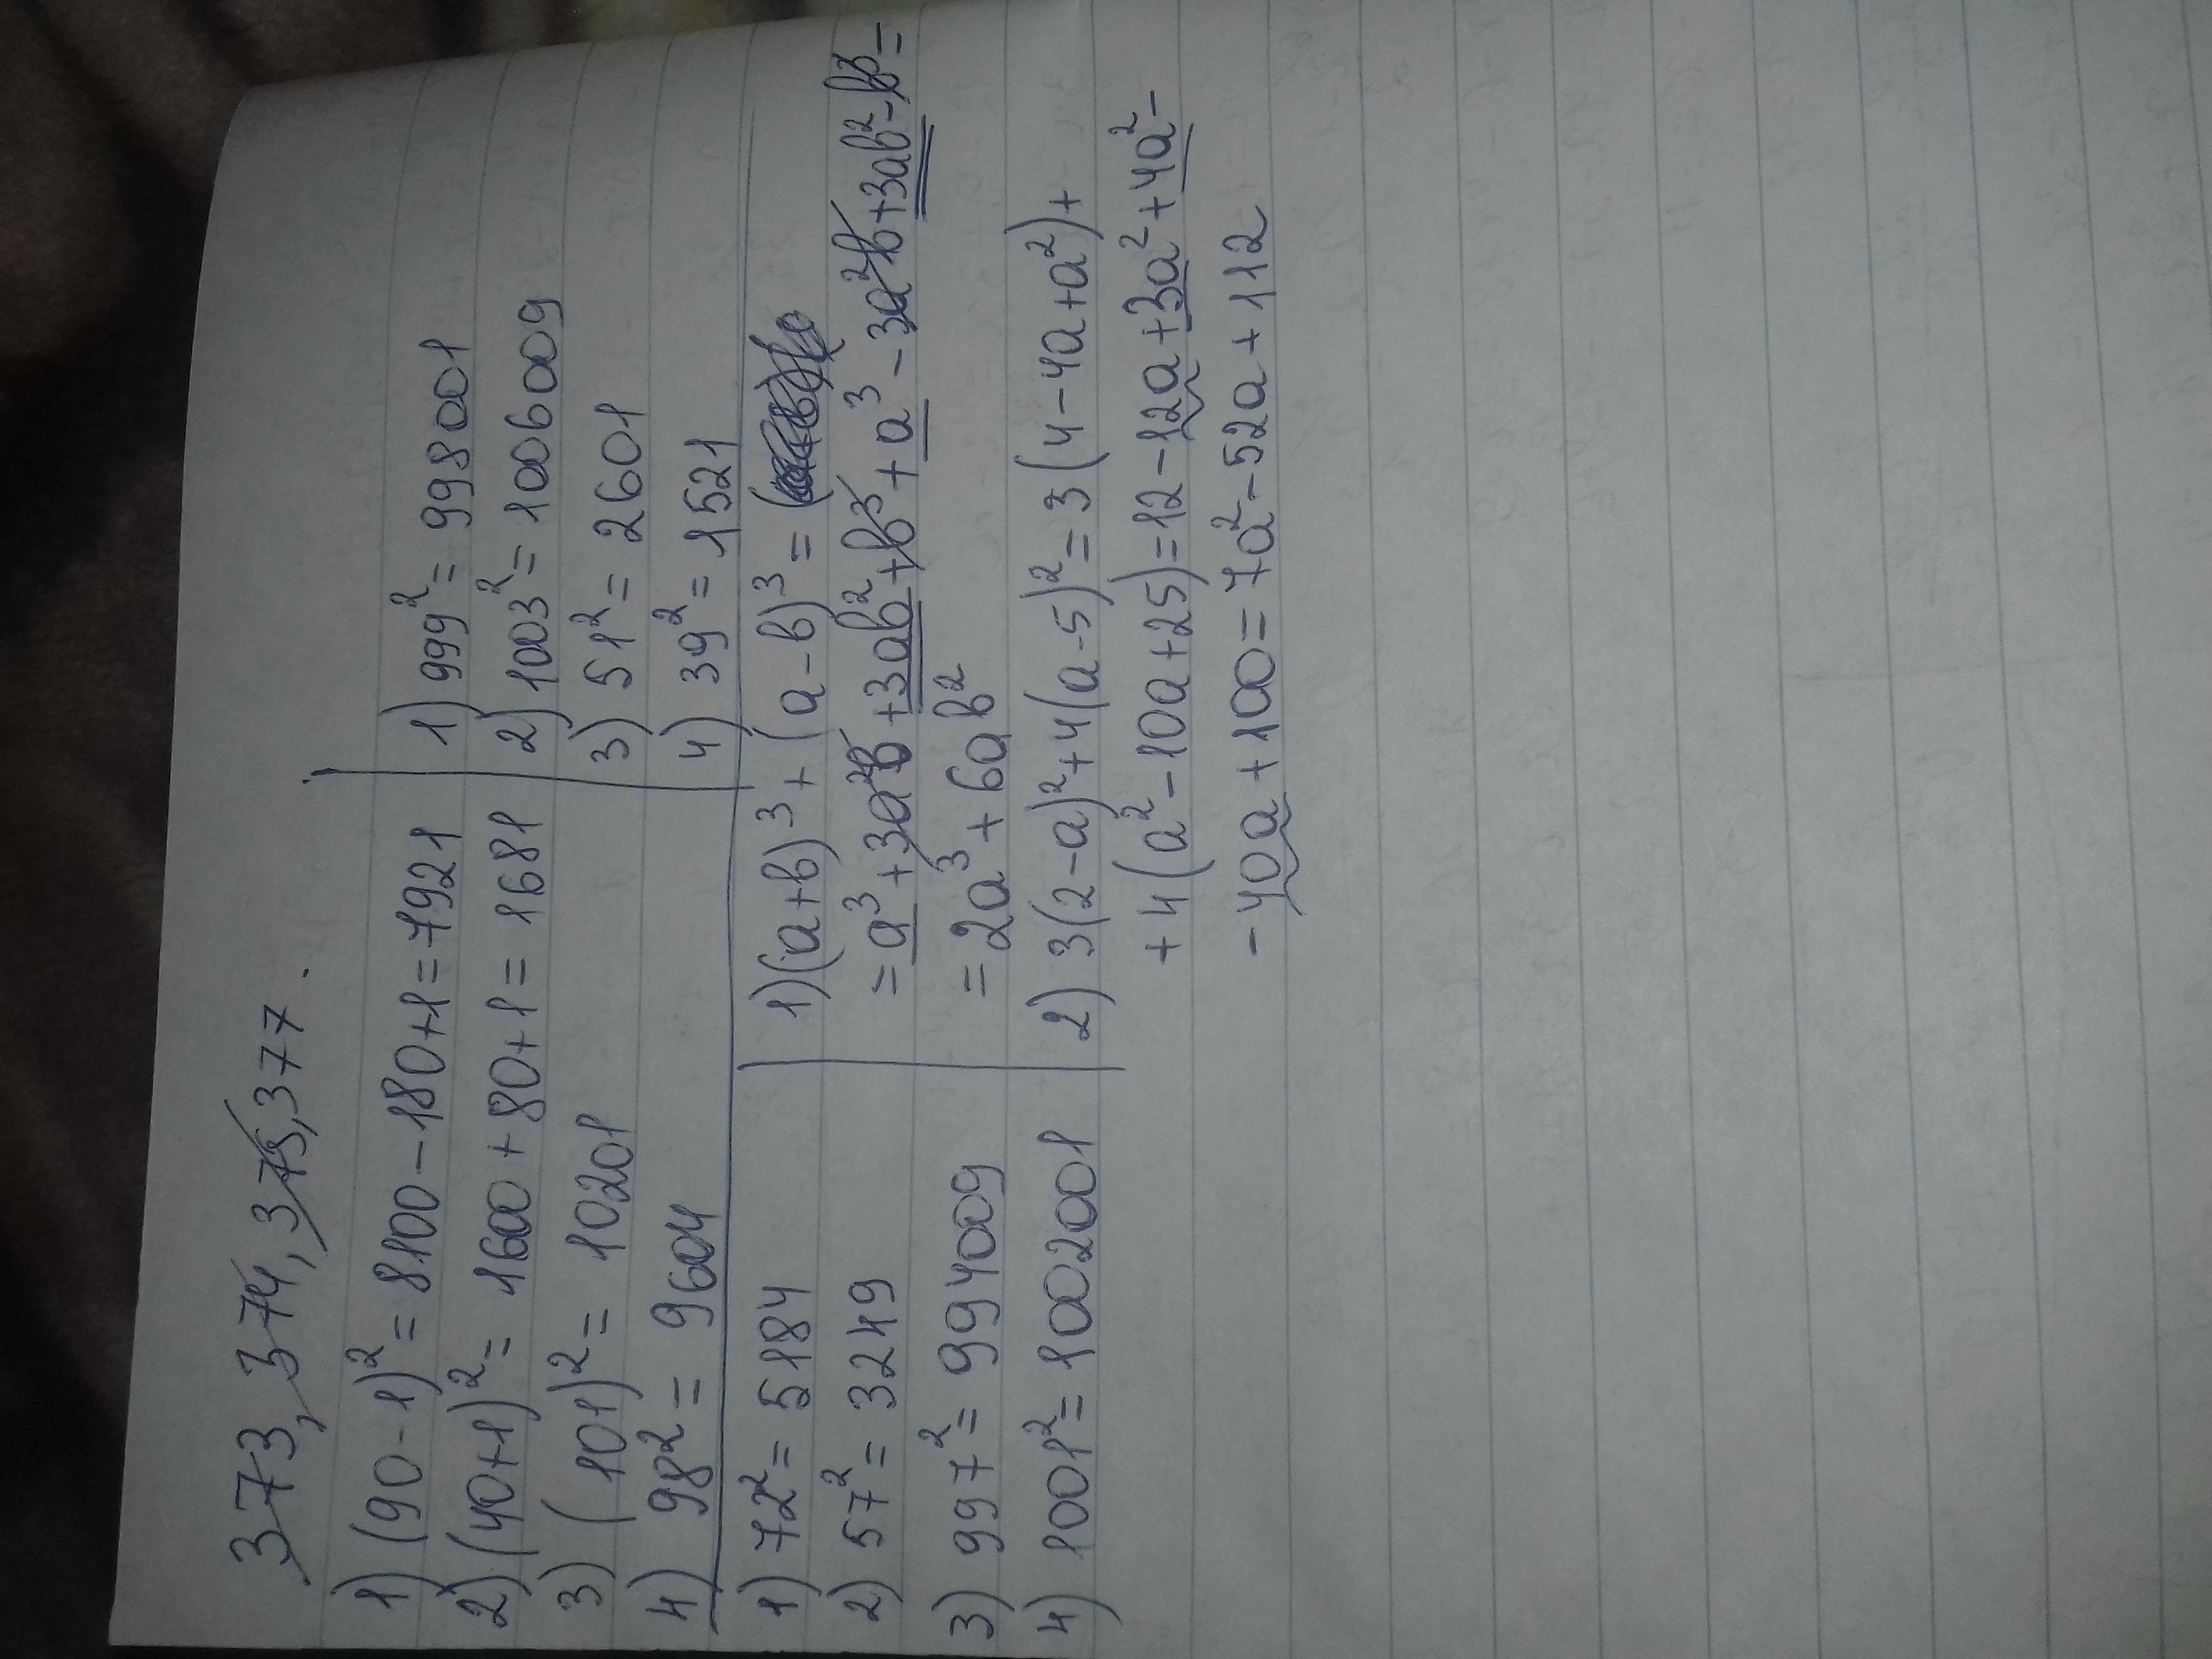 373, 374, 375, 377.
1) (90-1)² = 8100-180+1=7921
2) (40+1)² = 1600+80+1=1681
3) (101)² = 10201
4) 98² = 9604
1) 999² = 998001
2) 1003² = 1006009
3) 51² = 2601
4) 39² = 1521
1) 72² = 5184
2) 57² = 3249
3) 997² = 994009
4) 1001² = 1002001
1) (a+b)³ + (a-b)³ = (
= a³ + 3a²b + 3ab² + b³ + a³ - 3a²b + 3ab² - b³ =
= 2a³ + 6ab²
2) 3(2-a)² + 4(a-5)² = 3(4-4a+a²)+
+ 4(a²-10a+25) = 12-12a+3a²+4a²-
- 40a + 100 = 7a² - 52a + 112